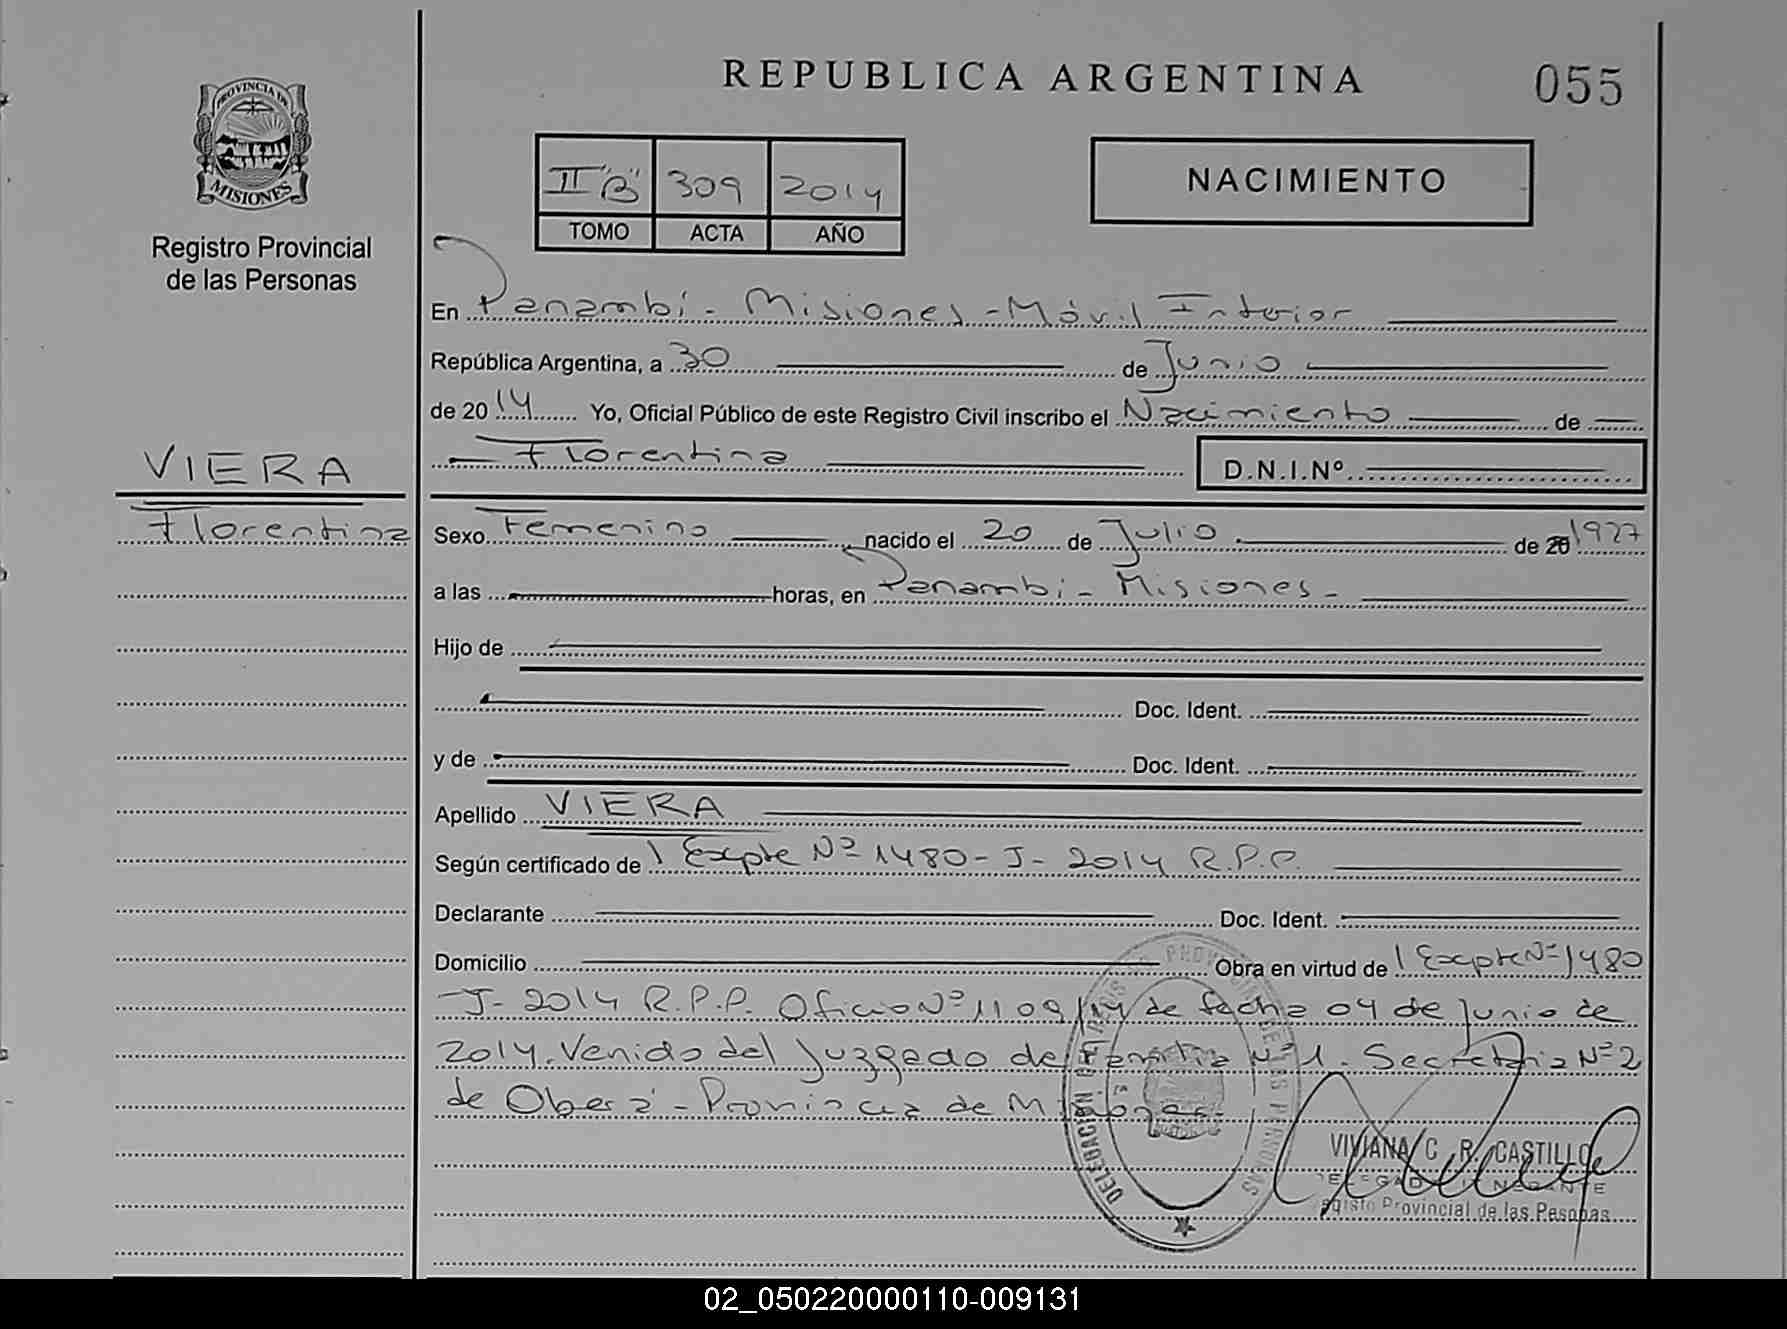 REPUBLICA ARGENTINA
055
PROVINCIA DE
MISIONES
Registro Provincial
de las Personas
II "B" 309 2014
TOMO ACTA AÑO
NACIMIENTO
En Panambí - Misiones - Móvil Interior
República Argentina, a 30 de Junio
de 2014 Yo, Oficial Público de este Registro Civil inscribo el Nacimiento de
Florentina D.N.I.Nº
VIERA
Florentina
Sexo Femenino nacido el 20 de Julio de 20 1927
a las horas, en Panambí - Misiones -
Hijo de
Doc. Ident.
y de Doc. Ident.
Apellido VIERA
Según certificado de Expte Nº 1480 - J - 2014 R.P.P.
Declarante Doc. Ident.
Domicilio Obra en virtud de Expte Nº 1480
- J - 2014 R.P.P. Oficio Nº 1109/14 de fecha 04 de Junio de
2014. Venido del Juzgado de Familia Nº 1. Secretaria Nº 2
de Oberá - Provincia de Misiones -
VIVIANA C. R. CASTILLO
DELEGADA ITINERANTE
Registro Provincial de las Personas
02_050220000110-009131